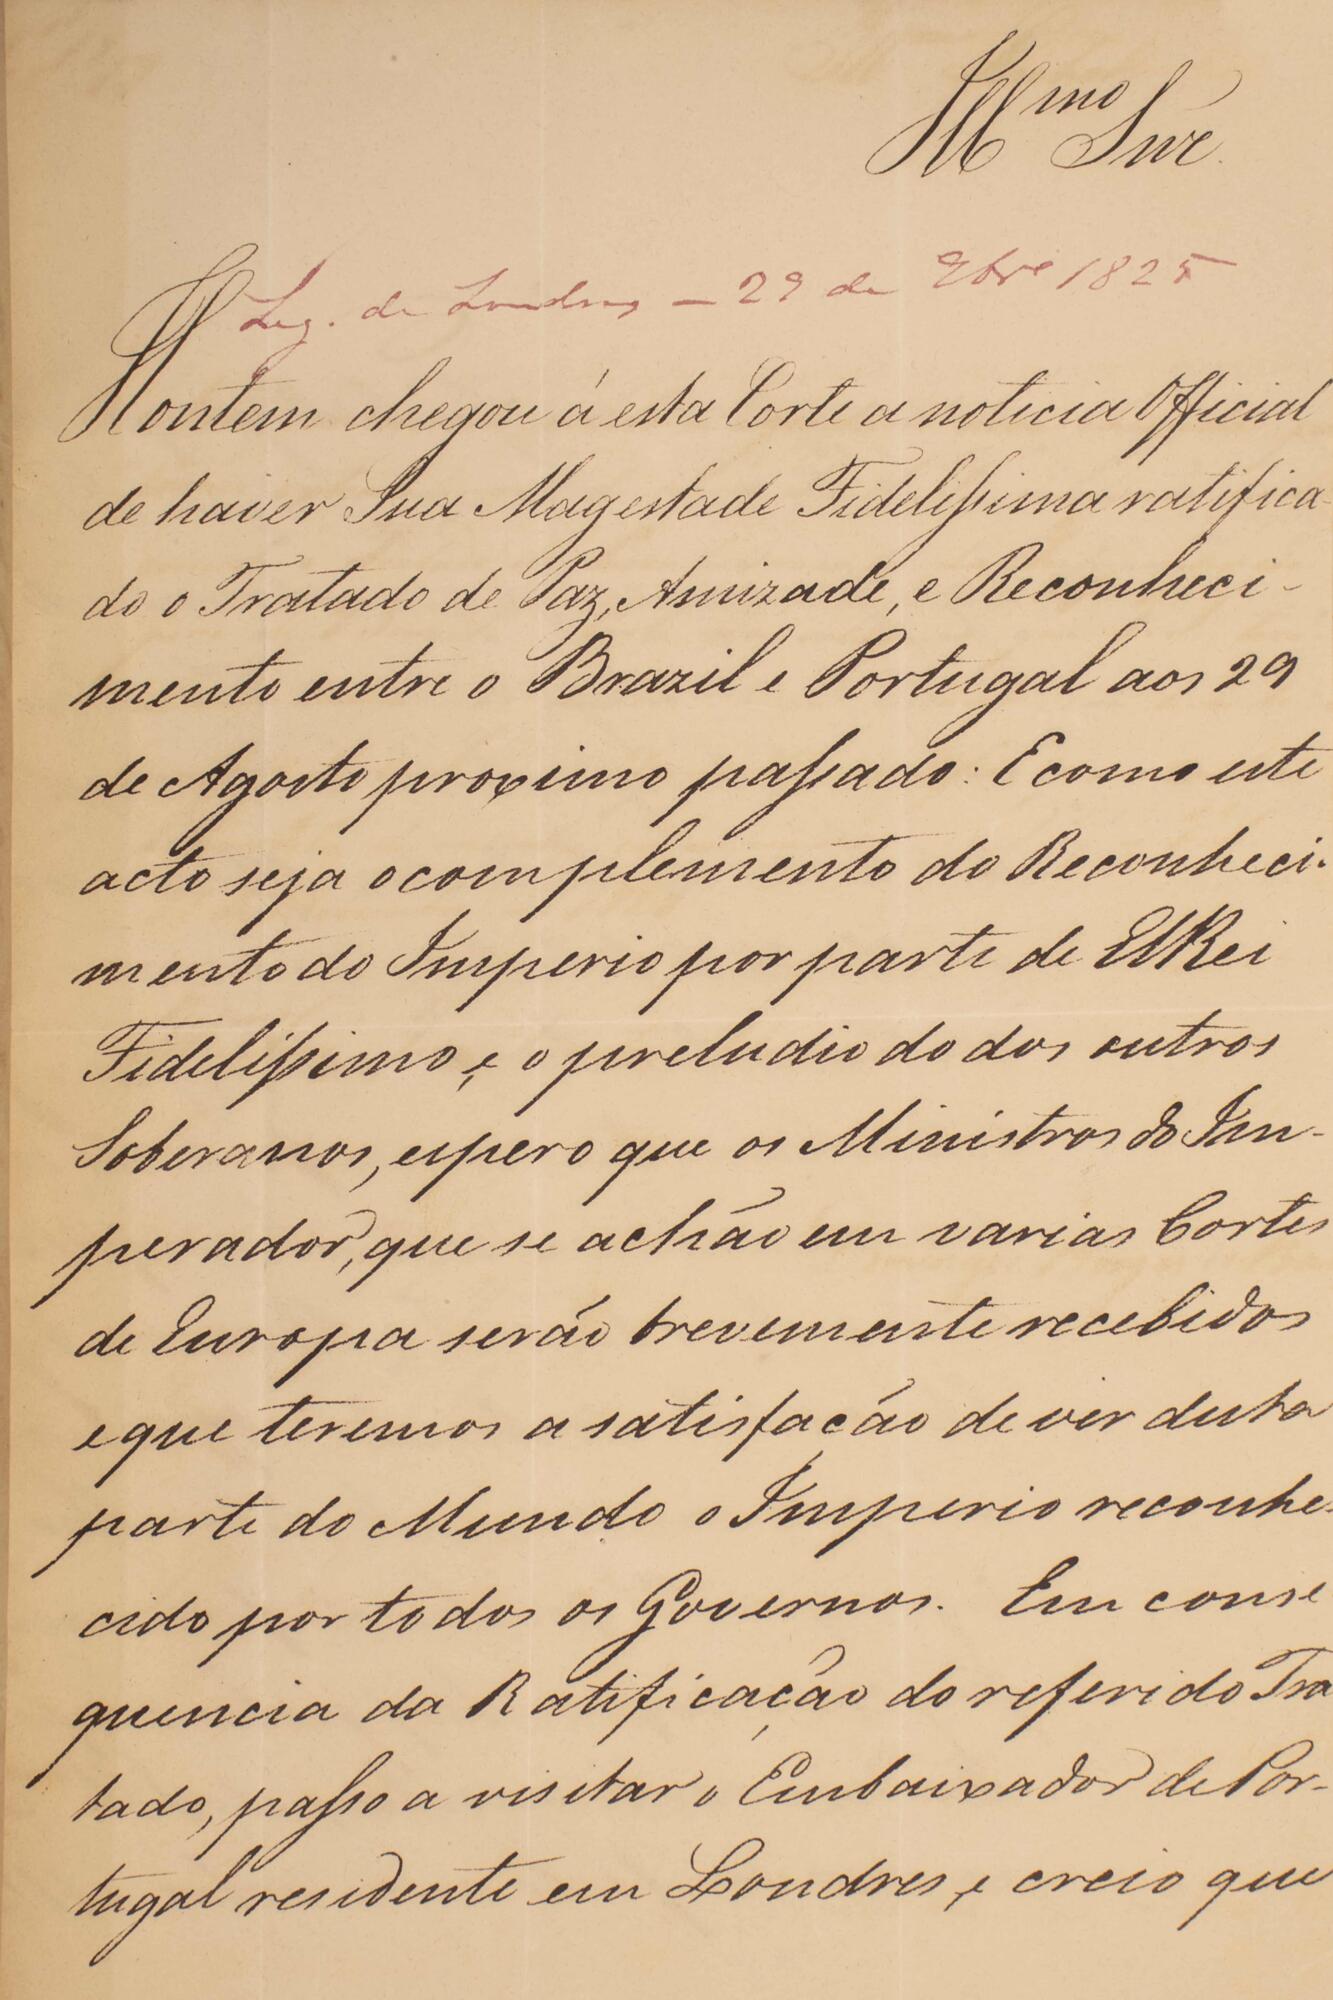 Illmo Snr.
Leg. de Londres — 29 de 9bre 1825
Hontem chegou á esta Corte a noticia Official
de haver Sua Magestade Fidelissima ratifica-
do o Tratado de Paz, Amizade, e Reconheci-
mento entre o Brazil e Portugal aos 29
de Agosto proximo passado: E como este
acto seja o complemento do Reconheci-
mento do Imperio por parte de ElRei
Fidelissimo, e o preludio do dos outros
Soberanos, espero que os Ministros do Im-
perador, que se achão em varias Cortes
de Europa serão brevemente recebidos
e que teremos a satisfação de ver desta
parte do Mundo o Imperio reconhe-
cido por todos os Governos. Em conse
quencia da Ratificação do referido Tra
tado, passo a visitar o Embaixador de Por-
tugal residente em Londres, e creio que